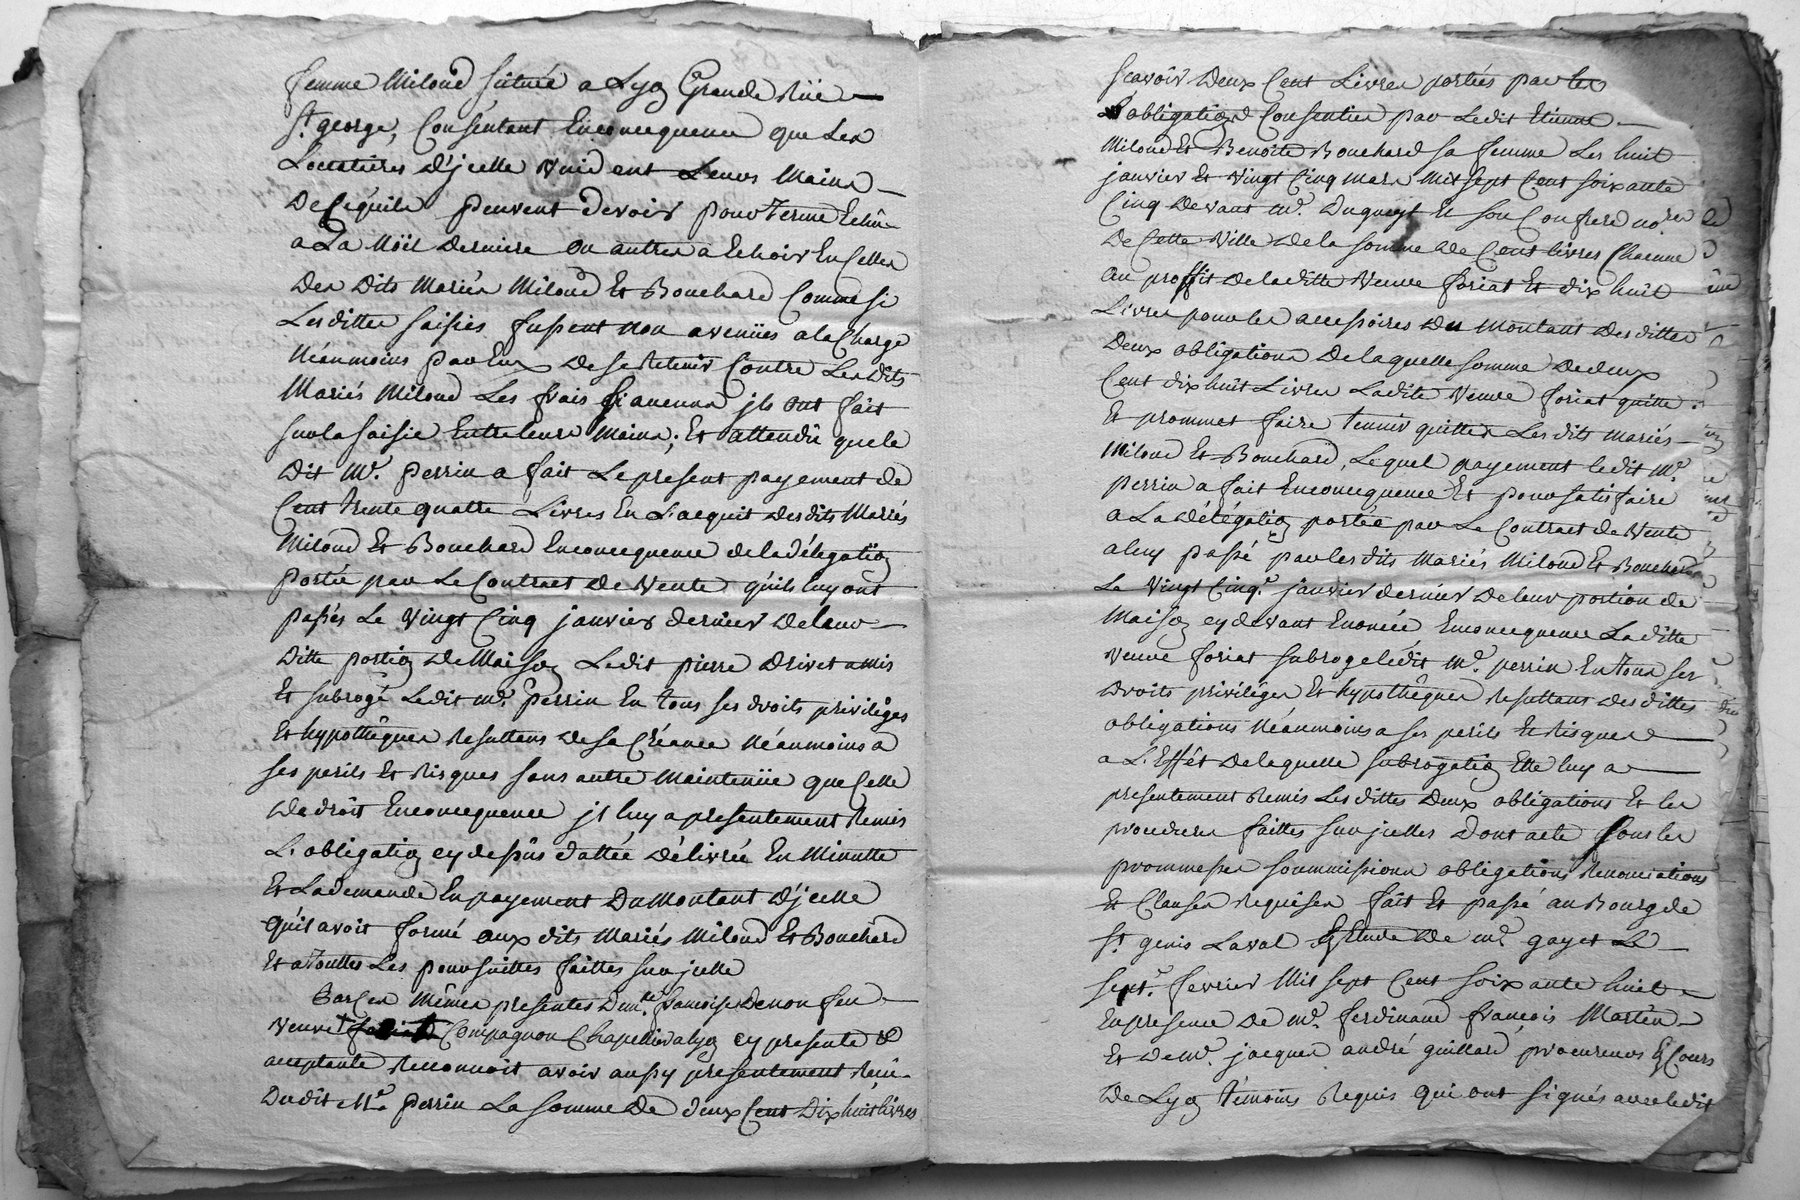 femme Miloud scituée a Lyon Grande Rüe
St. george, Consentant Enconcequence que Les
Locataires d'jcelle vuident Leurs Mains
De Cequils peuvent devoir pour Terme Echû
a La Nöel derniere ou autres a Echoir En Celles
Des Dits Mariés Miloud Et Bouchard Comme si
Les dittes saisies fussent non avenües a la Charge
Néanmoins par Eux de se Retenir Contre Lesdits
Mariés Miloud Les frais qu'jls ont fait
sur la saisie Entre leurs Mains; Et attendû que le
Dit Mr. Perrin a fait Le present payement de
Cent trente quatre Livres En L'acquit des dits Mariés
Miloud Et Bouchard Enconcequence de la délégation
Portée par Le Contract de Vente qu'ils luy ont
passés Le vingt Cinq janvier dernier de leur
Ditte portion de Maison Ledit pierre Drivet a mis
Et subrogé Ledit mr. Perrin En tous ses droits privilèges
Et hypothêques Resultens de sa Créance Néanmoins a
ses perils Et Risques sans autre Maintenüe que Celle
de droit Enconcequence jl luy a presentement Remis
L'obligation cy dessûs dattée délivrée En Minutte
Et La demande En payement Du Montant d'jcelle
qu'il avoit formé aux dits Mariés Miloud Et Bouchard
Et a Touttes Les poursuittes faittes sur jcelle
Par Ces Mêmes presentes Demlle. françoise Denon feu
veuve Compagnon Chapellier a lyon cy presente &
acceptante Reconnoit avoir aussy presentement Reçu
Dudit Mr. Perrin La somme de deux Cent Dix huit livres
scavoir deux Cent Livres portées par les
obligations Consenties par Ledit Etienne
Miloud Et Benoite Bouchard sa femme Les huit
janvier Et vingt Cinq Mars Mil sept Cent soixante
Cinq devant mr. Duqueyt Et son Confrere nores
De Cette Ville de la somme de Cent livres Chacune
au proffit de la ditte Veuve foriat Et dix huit
Livres pour les accessoires Du Montant des dittes
Deux obligations De laquelle somme De deux
Cent dix huit Livres Ladite Veuve foriat quitte
Et prommet faire tennir quittes Les dits mariés
Miloud Et Bouchard, Lequel payement ledit mr.
perrin a fait Enconcequence Et pour satisfaire
a La délégation portée par Le Contract de Vente
a luy passé par les dits Mariés Miloud Et Bouchard
Le Vingt Cinq. janvier dernier de leur portion de
Maison cy devant Enoncée Enconcequence La ditte
Veuve foriat subroge ledit mr. perrin En tous ses
droits privilèges Et hypothêques Resultans des dittes
obligations Néanmoins a ses perils Et Risques
a L'Effét de laquelle subrogation Elle luy a
presentement Remis Les dittes Deux obligations Et les
procedures faittes sur jcelles Dont acte sous les
prommesses soummissions obligations Renonciations
Et Clauses Requises fait Et passé au Bourg de
St. genis Laval Etude de mr. gayet Le
sept. fevrier Mil sept Cent soixante huit
En presence de mr. ferdinand françois Martin
Et de mr. jacques andré guillard procureurs Es Cours
de Lyon témoins Requis qui ont signés avec ledit